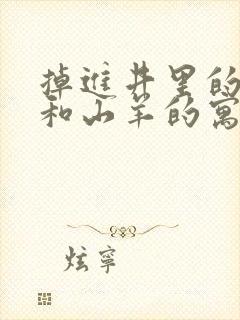 掉进井里的
和山羊的寓
炫宁